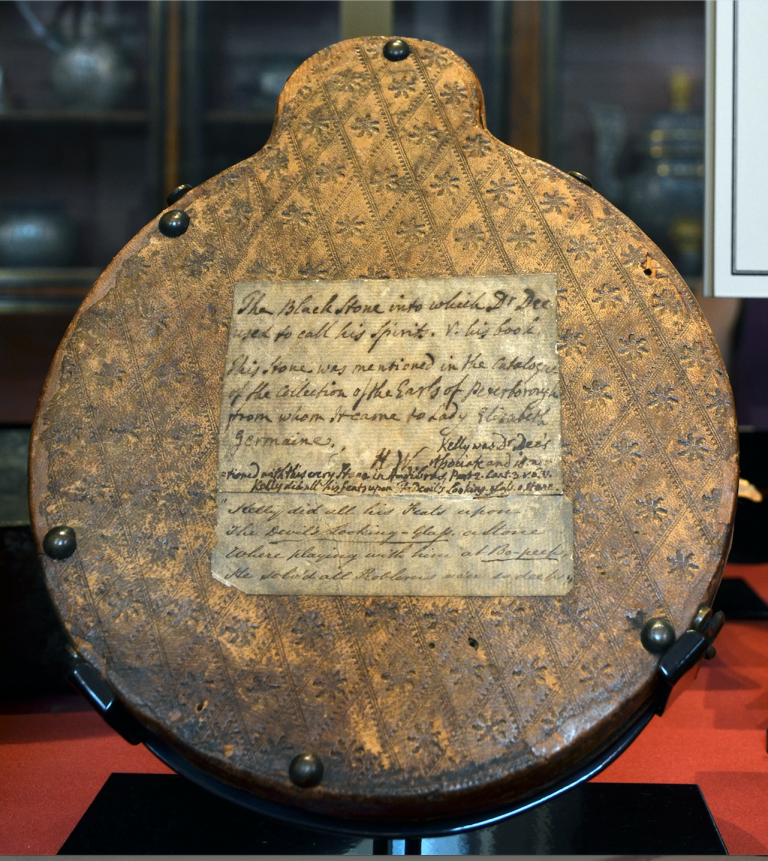 The Black Stone into which Dr Dee
used to call his Spirits. V. his book.
This Stone was mentioned in the Catalogue
of the Collection of the Earls of Peterborough
from whom it came to Lady Elizabeth
Germaine.
Kelly was Dr Dee's
H W. Associate and is
tioned with this very Stone in Hudibras, Part 2. Cant. 3. v.
Kelly did all his feats upon The Devil's Looking-glass, a Stone
"Kelly did all his Feats upon
The Devil's Looking-Glass, a Stone
Where playing with him at Bo-peep,
He solv'd all Problems ne'er so deep.